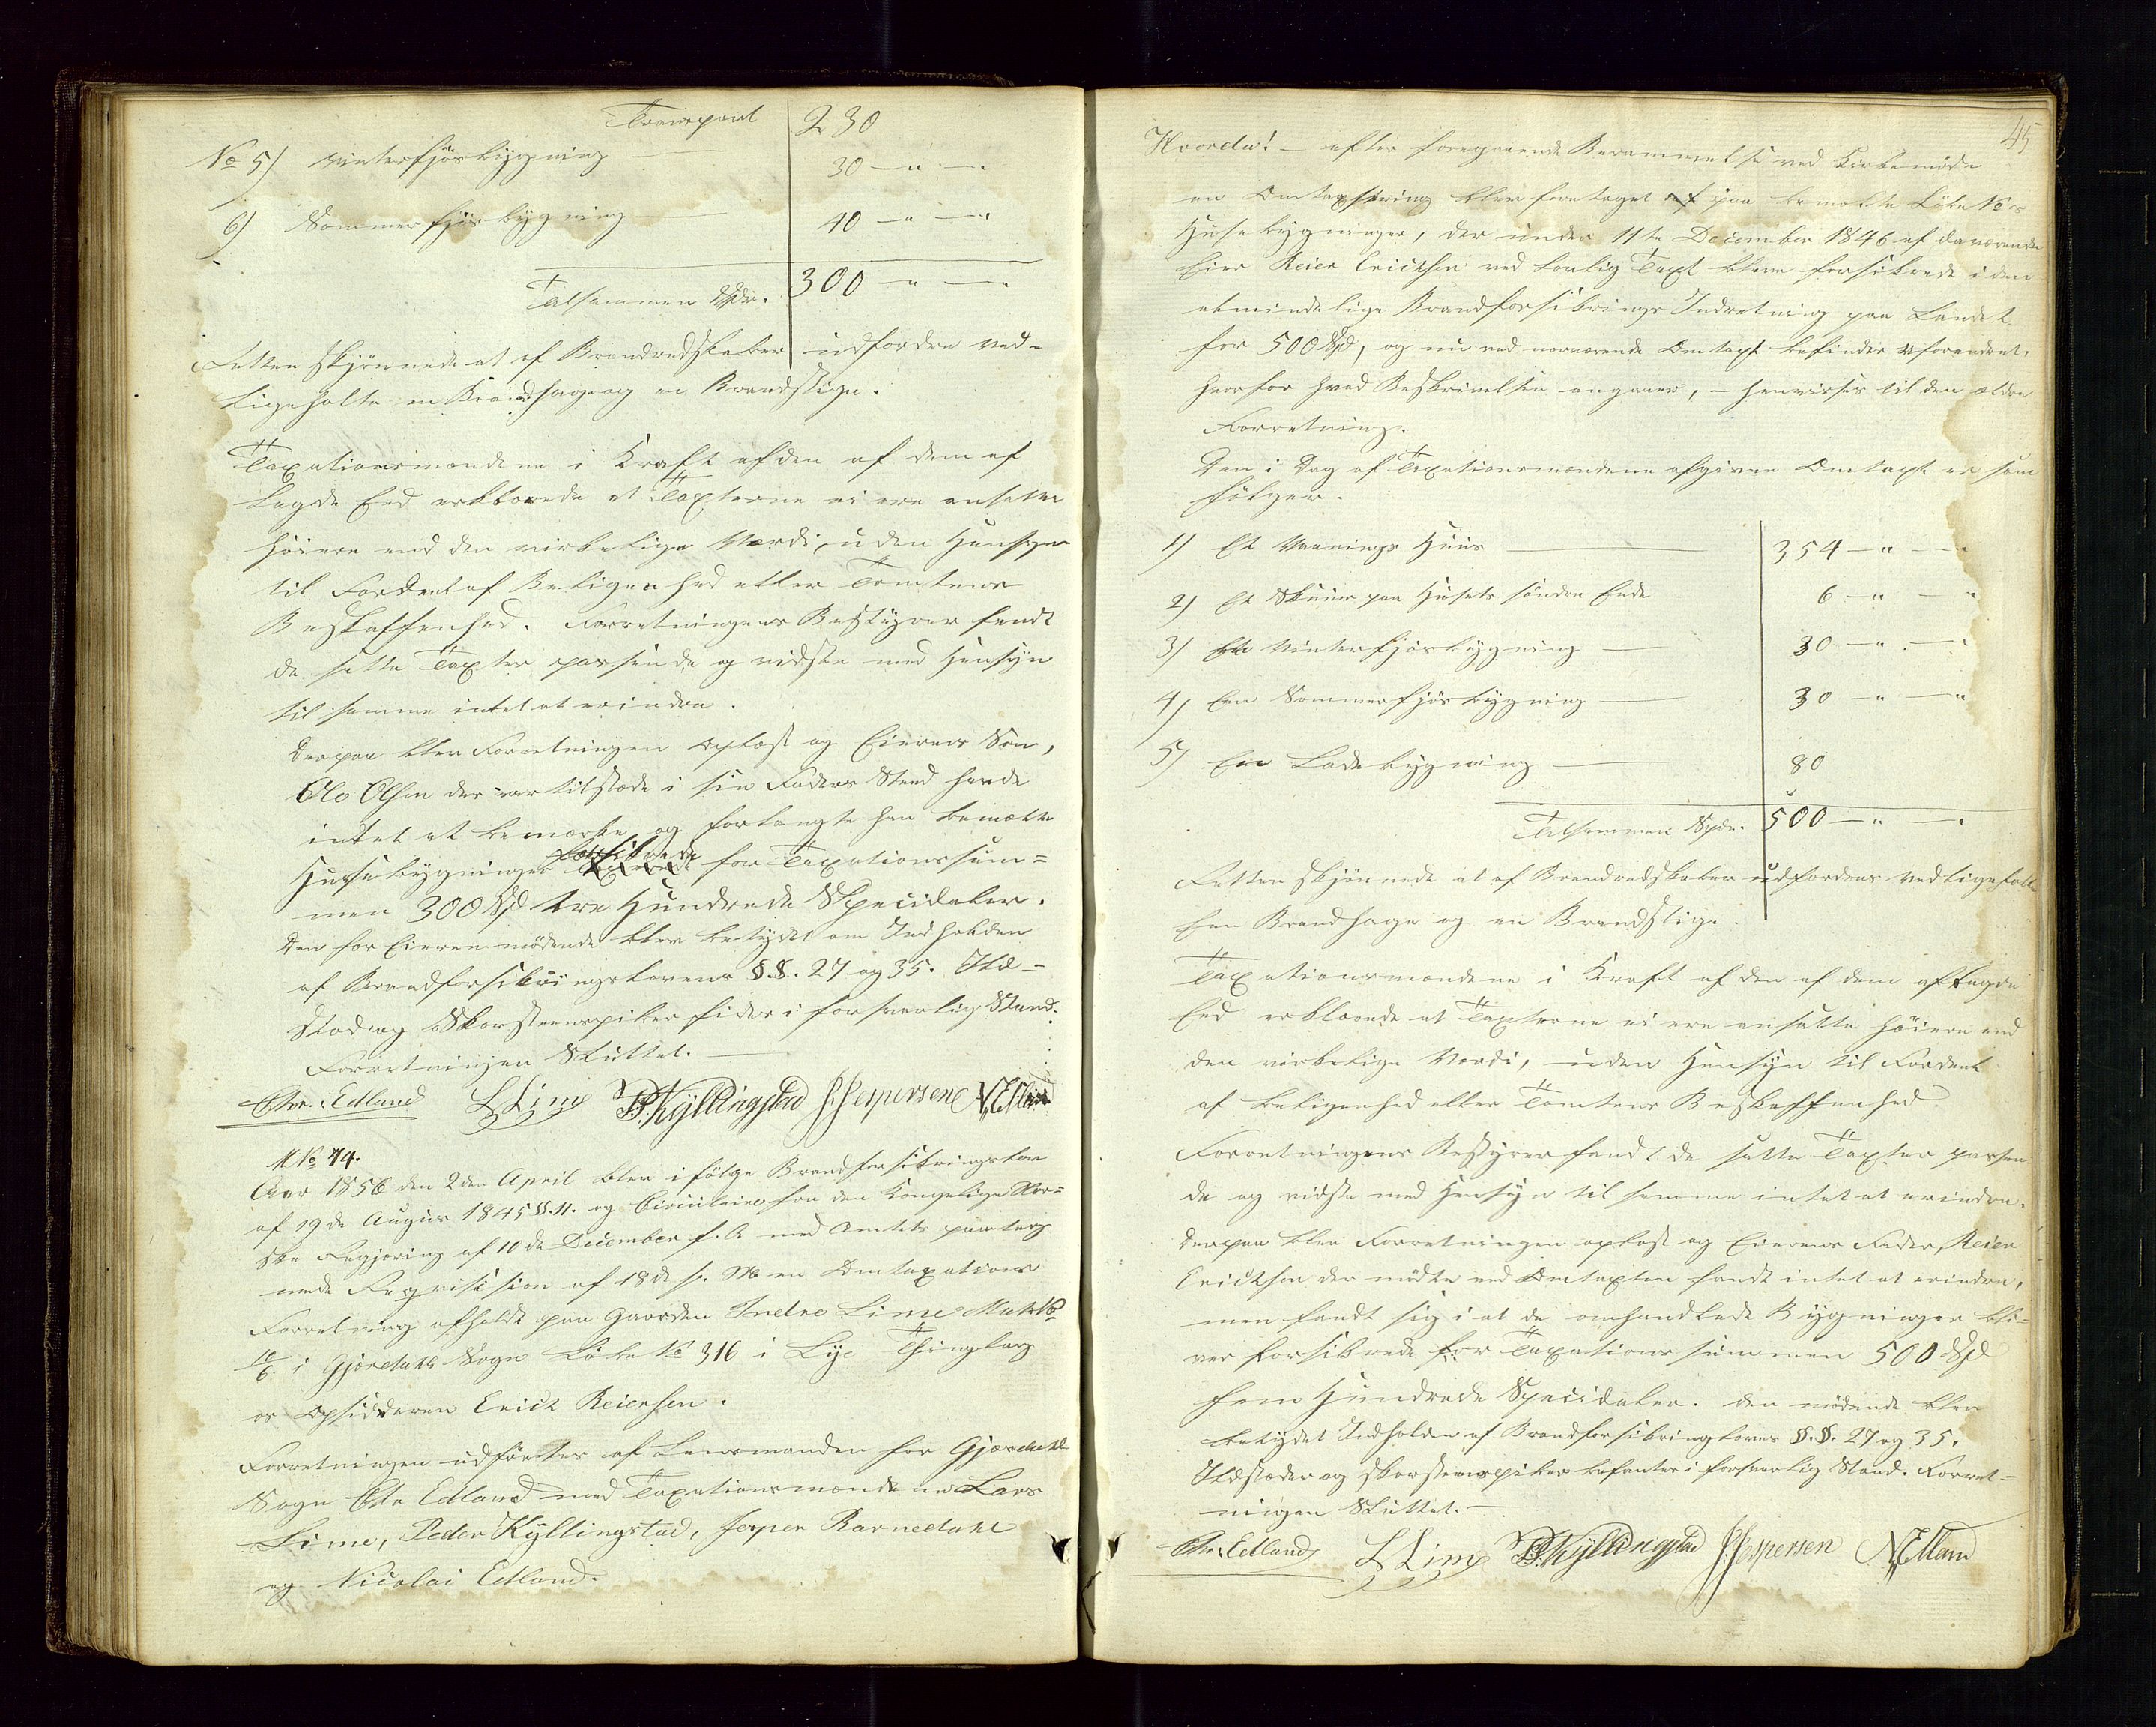 Transport 230
No 5) Vinterfjösbygning — 30 — " —
6) Sommerfjösbygning — 40 — " — "
Tilsammen Spdr. 300 — " —
Retten skjönnede at af Brandredskaber udfordres ved-
ligeholdte en Brandhage og en Brandstige.
Taxationsmændene i Kraft af den af dem af
lagde Eed erklærede at Taxterne ei ere ansatte
höiere end den virkelige Værdi, uden Hensyn
til Fordeel af Beligenhed eller Tomtens
Beskaffenhed. Forretningens Bestyrer fandt
de satte Taxter passende og vidste med Hensyn
til samme intet at erindre.
Derpaa blev Forretningen oplæst og Eierens Sön,
Ole Olsen der var tilstæde i sin Faders Sted havde
intet at bemærke og forlangte han bemældte
Huusebygninger forsikrede for Taxationssum=
men 300 Spd tre Hundrede Speciedaler.
Den for Eieren mödende blev betydet om Indholden
af Brandforsikringslovens §.§. 27 og 35. Ild=
sted og Skorsteenspiber fides i forsvarlig Stand.
Forretningen Sluttet. —
Chr. Edland L Lime P. Kyllingstad J. Jespersen N. Edland
M No 74.
Aar 1856 den 2den April blev ifölge Brandforsikringslov
af 19de August 1845 §.11. og Circulaire fra den Kongelige Nor=
ske Regjering af 10de December f. A. med Amtets paateg
nede Reqvisision af 18de s. M. en Omtaxations
Forretning afholdt paa Gaarden Indre Lime Matr No
10/6. i Gjesdahls Sogn Löbe No 316 i Lye Thinglag
os Opsidderen Erick Reiersen.
Forretningen udförtes af Lensmanden for Gjesdahl
Sogn Chr Edland med Taxationsmændene Lars
Lime, Peder Kyllingstad, Jesper Ravnedahl
og Nicolai Edland.
45
Hvorda! — efter foregaaende Berammelse ved Kirkemöde
en Omtaxering blev foretaget af paa bemeldte Löbe No's
Husebygninger, der under 11te December 1846 af daværende
Eier Reier Ericksen ved lovlig Taxt bleve forsikrede i den
almindelige Brandforsikrings Indretning paa Landet
for 500 Spd, og nu ved nærværende Omtaxt befindes uforandret,
hvorfor hvad Beskrivelsen angaaer, — henvises til den ældre
Forretning.
Den i Dag af Taxationsmændene afgivne Omtaxt er som
fölger.
1) Et Vaanings Huus — 354 — " —
2) Et Skuur paa Husets söndre Ende 6 — " — "
3) En Vinterfjösbygning — 30 — " —
4) Een Sommerfjösbygning — 30 — " — "
5) Een Ladebygning — 80
Tilsammen Spdr. 500 — " —
Retten skjönnede at af Brandredskaber udfordres vedligeholdte
Een Brandhage og en Brandstige.
Taxationsmændene i Kraft af den af dem aflagde
Eed erklærede at Taxterne ei ere ansatte höiere end
den virkelige Værdi, uden Hensyn til Fordeel
af beligenhed eller Tomtens Beskaffenhed
Forretningens Bestyrer fandt de satte Taxter passen
de og vidste med Hensyn til samme intet at erindre.
Derpaa blev Forretningen oplæst og Eierens Fader, Reier
Ericksen der mödte ved Omtaxten fandt intet at erindre,
men fandt sig i at de omhandlede Bygninger bli-
ver forsikrede for Taxations summen 500 Spd
fem Hundrede Speciedaler. Den mödende blev
betydet Indholden af Brandforsikringslovens §.§. 27 og 35.
Ildstæder og skorsteenspiber befantes i forsvarlig Stand. Forret=
ningen Sluttet. —
Chr. Edland L Lime P. Kyllingstad J. Jespersen N. Edland